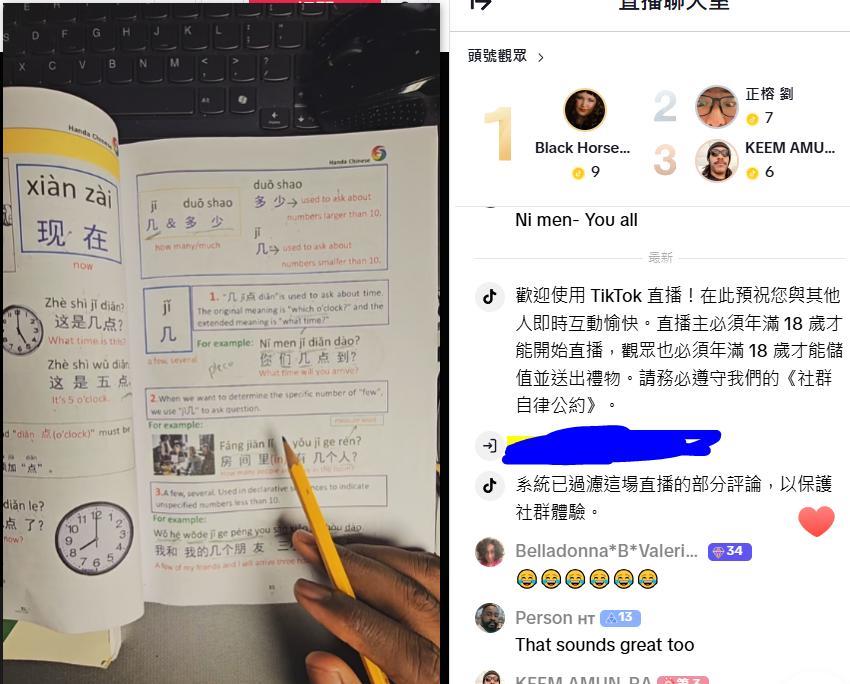 E R T Y U I O P
S D F G H J K L
X C V B N M < >
Alt
Handa Chinese
xiàn zài
现 在
now
Zhè shì jǐ diǎn?
这是几点?
What time is this?
Zhè shì wǔ diǎn
这 是 五 点
It's 5 o'clock.
"diǎn 点(o'clock)" must be
加 "点".
diǎn le?
点 了?
now?
Handa Chinese
jǐ duō shao
几 & 多 少
how many/much
duō shao
多 少→ used to ask about
numbers larger than 10.
jǐ
几→ used to ask about
numbers smaller than 10.
jǐ
几
a few, several
1. "几 jǐ点 diǎn"is used to ask about time.
The original meaning is "which o'clock?" and the
extended meaning is "what time?"
For example:
Nǐ men jǐ diǎn dào?
你 们 几 点 到?
What time will you arrive?
2.When we want to determine the specific number of "few",
we use "jǐ几" to ask question.
For example:
measure word
Fáng jiān lǐ yǒu jǐ ge rén?
房 间 里(in) 有 几 个人?
How many people are in the room?
3.A few, several. Used in declarative sentences to indicate
unspecified numbers less than 10.
For example:
Wǒ hé wǒde jǐ ge péng you
dào.
我和 我的 几个朋 友 三
A few of my friends and I will arrive three
12 1 2 3 4 5 6 7 8 9 10 11
直播聊天室
頭號觀眾 >
1
Black Horse...
9
2
正榕 劉
7
3
KEEM AMU...
6
Ni men- You all
最新
歡迎使用 TikTok 直播！在此預祝您與其他
人即時互動愉快。直播主必須年滿 18 歲才
能開始直播，觀眾也必須年滿 18 歲才能儲
值並送出禮物。請務必遵守我們的《社群
自律公約》。
系統已過濾這場直播的部分評論，以保護
社群體驗。
Belladonna*B*Valeri... 34
😂😂😂😂😂😂
Person HT 13
That sounds great too
KEEM AMUN-RA